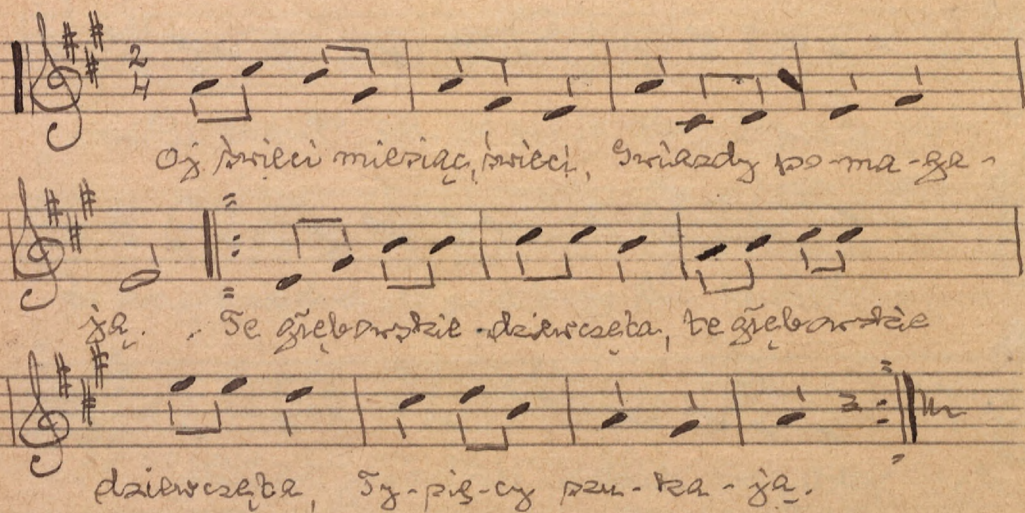 2
4
Oj świeci miesiąc, świeci, Gwiazdy po-ma-ga-
ją. Te głębowskie dziewczęta, te głębowskie
dziewczęta, Ty-pię-cy szu-ka-ją.